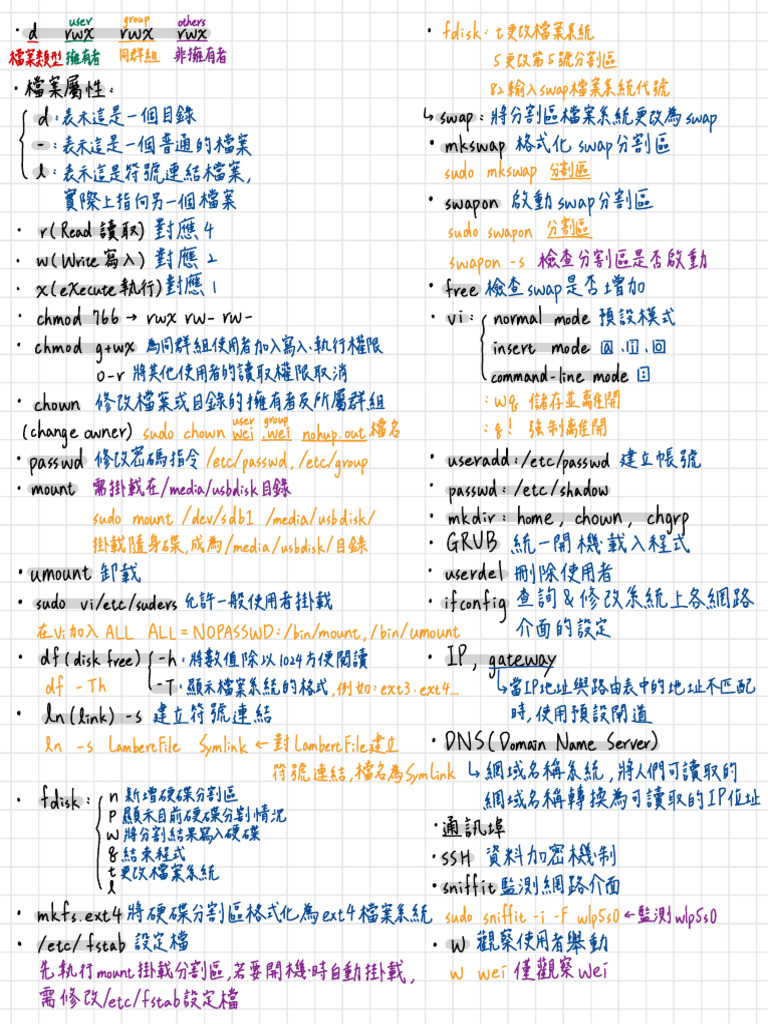 user group others
· d rwx rwx rwx
檔案類型 擁有者 同群組 非擁有者
· 檔案屬性:
d:表示這是一個目錄
-:表示這是一個普通的檔案
l:表示這是符號連結檔案,
實際上指向另一個檔案
· r(Read 讀取) 對應 4
· w(Write 寫入) 對應 2
· x(eXecute 執行) 對應 1
· chmod 766 → rwx rw- rw-
· chmod g+wx 為同群組使用者加入寫入、執行權限
o-r 將其他使用者的讀取權限取消
· chown 修改檔案或目錄的擁有者及所屬群組
user group
(change owner) sudo chown wei .wei nohup.out 檔名
· passwd 修改密碼指令 /etc/passwd, /etc/group
· mount 需掛載在/media/usbdisk目錄
sudo mount /dev/sdb1 /media/usbdisk/
掛載隨身碟,成為/media/usbdisk/目錄
· umount 卸載
· sudo vi/etc/suders 允許一般使用者掛載
在vi加入 ALL ALL = NOPASSWD:/bin/mount, /bin/umount
· df (disk free) -h:將數值除以1024方便閱讀
df -Th -T:顯示檔案系統的格式,例如:ext3.ext4...
· ln(link) -s 建立符號連結
ln -s LambertFile Symlink ← 對LambertFile建立
符號連結,檔名為Symlink
· fdisk: n 新增硬碟分割區
p 顯示目前硬碟分割情況
w 將分割結果寫入硬碟
q 結束程式
t 更改檔案系統
l
· mkfs.ext4 將硬碟分割區格式化為ext4檔案系統
· /etc/fstab 設定檔
先執行mount掛載分割區,若要開機時自動掛載,
需修改/etc/fstab設定檔
· fdisk: t更改檔案系統
5更改第5號分割區
82輸入swap檔案系統代號
↳ swap:將分割區檔案系統更改為swap
· mkswap 格式化 swap分割區
sudo mkswap 分割區
· swapon 啟動swap分割區
sudo swapon 分割區
swapon -s 檢查分割區是否啟動
· free 檢查swap是否增加
· vi: normal mode 預設模式
insert mode a、i、o
command-line mode :
:wq 儲存並離開
:q! 強制離開
· useradd:/etc/passwd 建立帳號
· passwd:/etc/shadow
· mkdir: home, chown, chgrp
· GRUB 統一開機載入程式
· userdel 刪除使用者
· ifconfig 查詢&修改系統上各網路
介面的設定
· IP, gateway
↳當IP地址與路由表中的地址不匹配
時,使用預設閘道
· DNS(Domain Name Server)
↳ 網域名稱系統,將人們可讀取的
網域名稱轉換為可讀取的IP位址
· 通訊埠
· SSH 資料加密機制
· sniffit 監測網路介面
sudo sniffit -i -F wlp5s0 ← 監測wlp5s0
· w 觀察使用者舉動
w wei 僅觀察wei